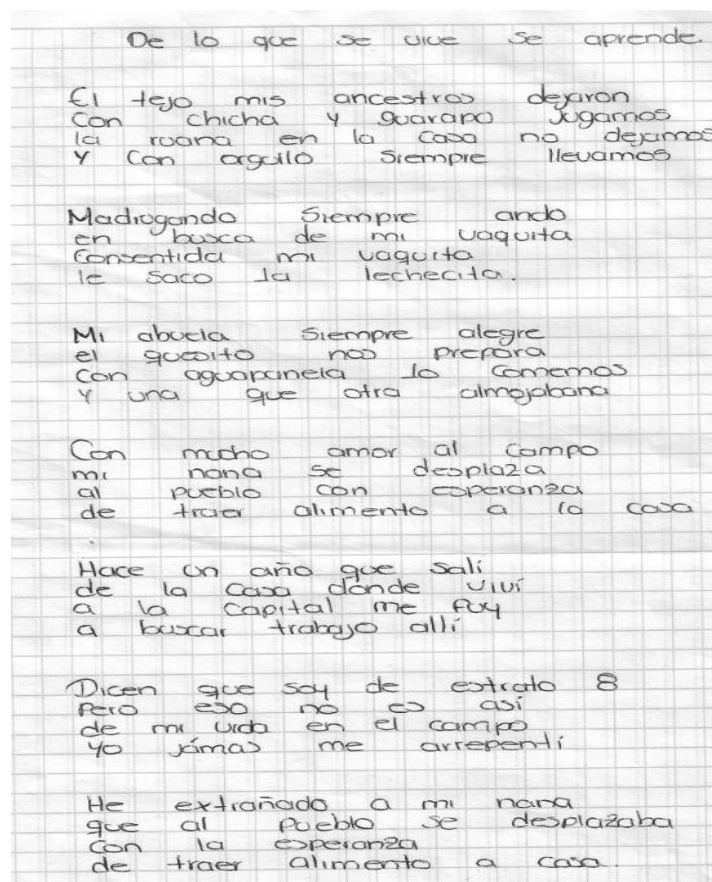 De lo que se vive se aprende.
El tejo mis ancestros dejaron
Con chicha y guarapo jugamos
la ruana en la casa no dejamos
Y con orgullo siempre llevamos
Madrugando siempre ando
en busca de mi vaquita
Consentida mi vaquita
le saco la lechecita.
Mi abuela siempre alegre
el quesito nos prepara
Con aguapanela lo comemos
Y una que otra almojabana
Con mucho amor al campo
mi nana se desplaza
al pueblo con esperanza
de traer alimento a la casa
Hace un año que salí
de la casa dónde viví
a la capital me fuy
a buscar trabajo allí
Dicen que soy de estrato 8
Pero eso no es así
de mi vida en el campo
yo jámas me arrepentí
He extrañado a mi nana
que al pueblo se desplazaba
con la esperanza
de traer alimento a casa.